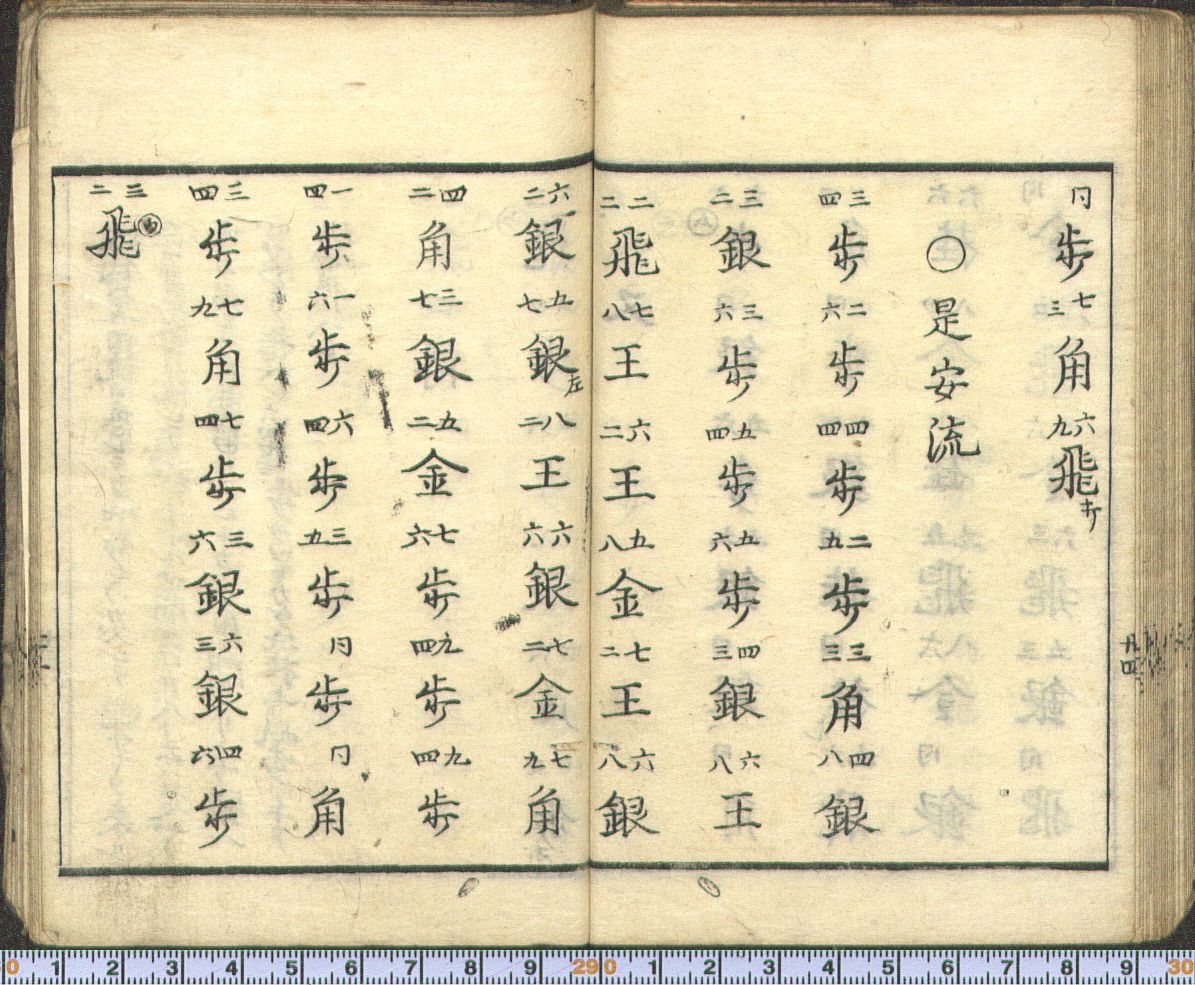 同歩 七三角 六九飛打
○是安流
三四歩 二六歩 四四歩 二五歩 三三角 四八銀
三二銀 三六歩 五四歩 五六歩 四三銀 六八王
二二飛 七八王 六二王 五八金 七二王 六八銀
六二銀 五七銀左 八二王 六六銀 七二金 七九角
四二角 三七銀 五二金 七六歩 九四歩 九四歩
一四歩 一六歩 六四歩 三五歩 同歩 同角
三四歩 七九角 七四歩 三六銀 六三銀 四六歩
三二飛